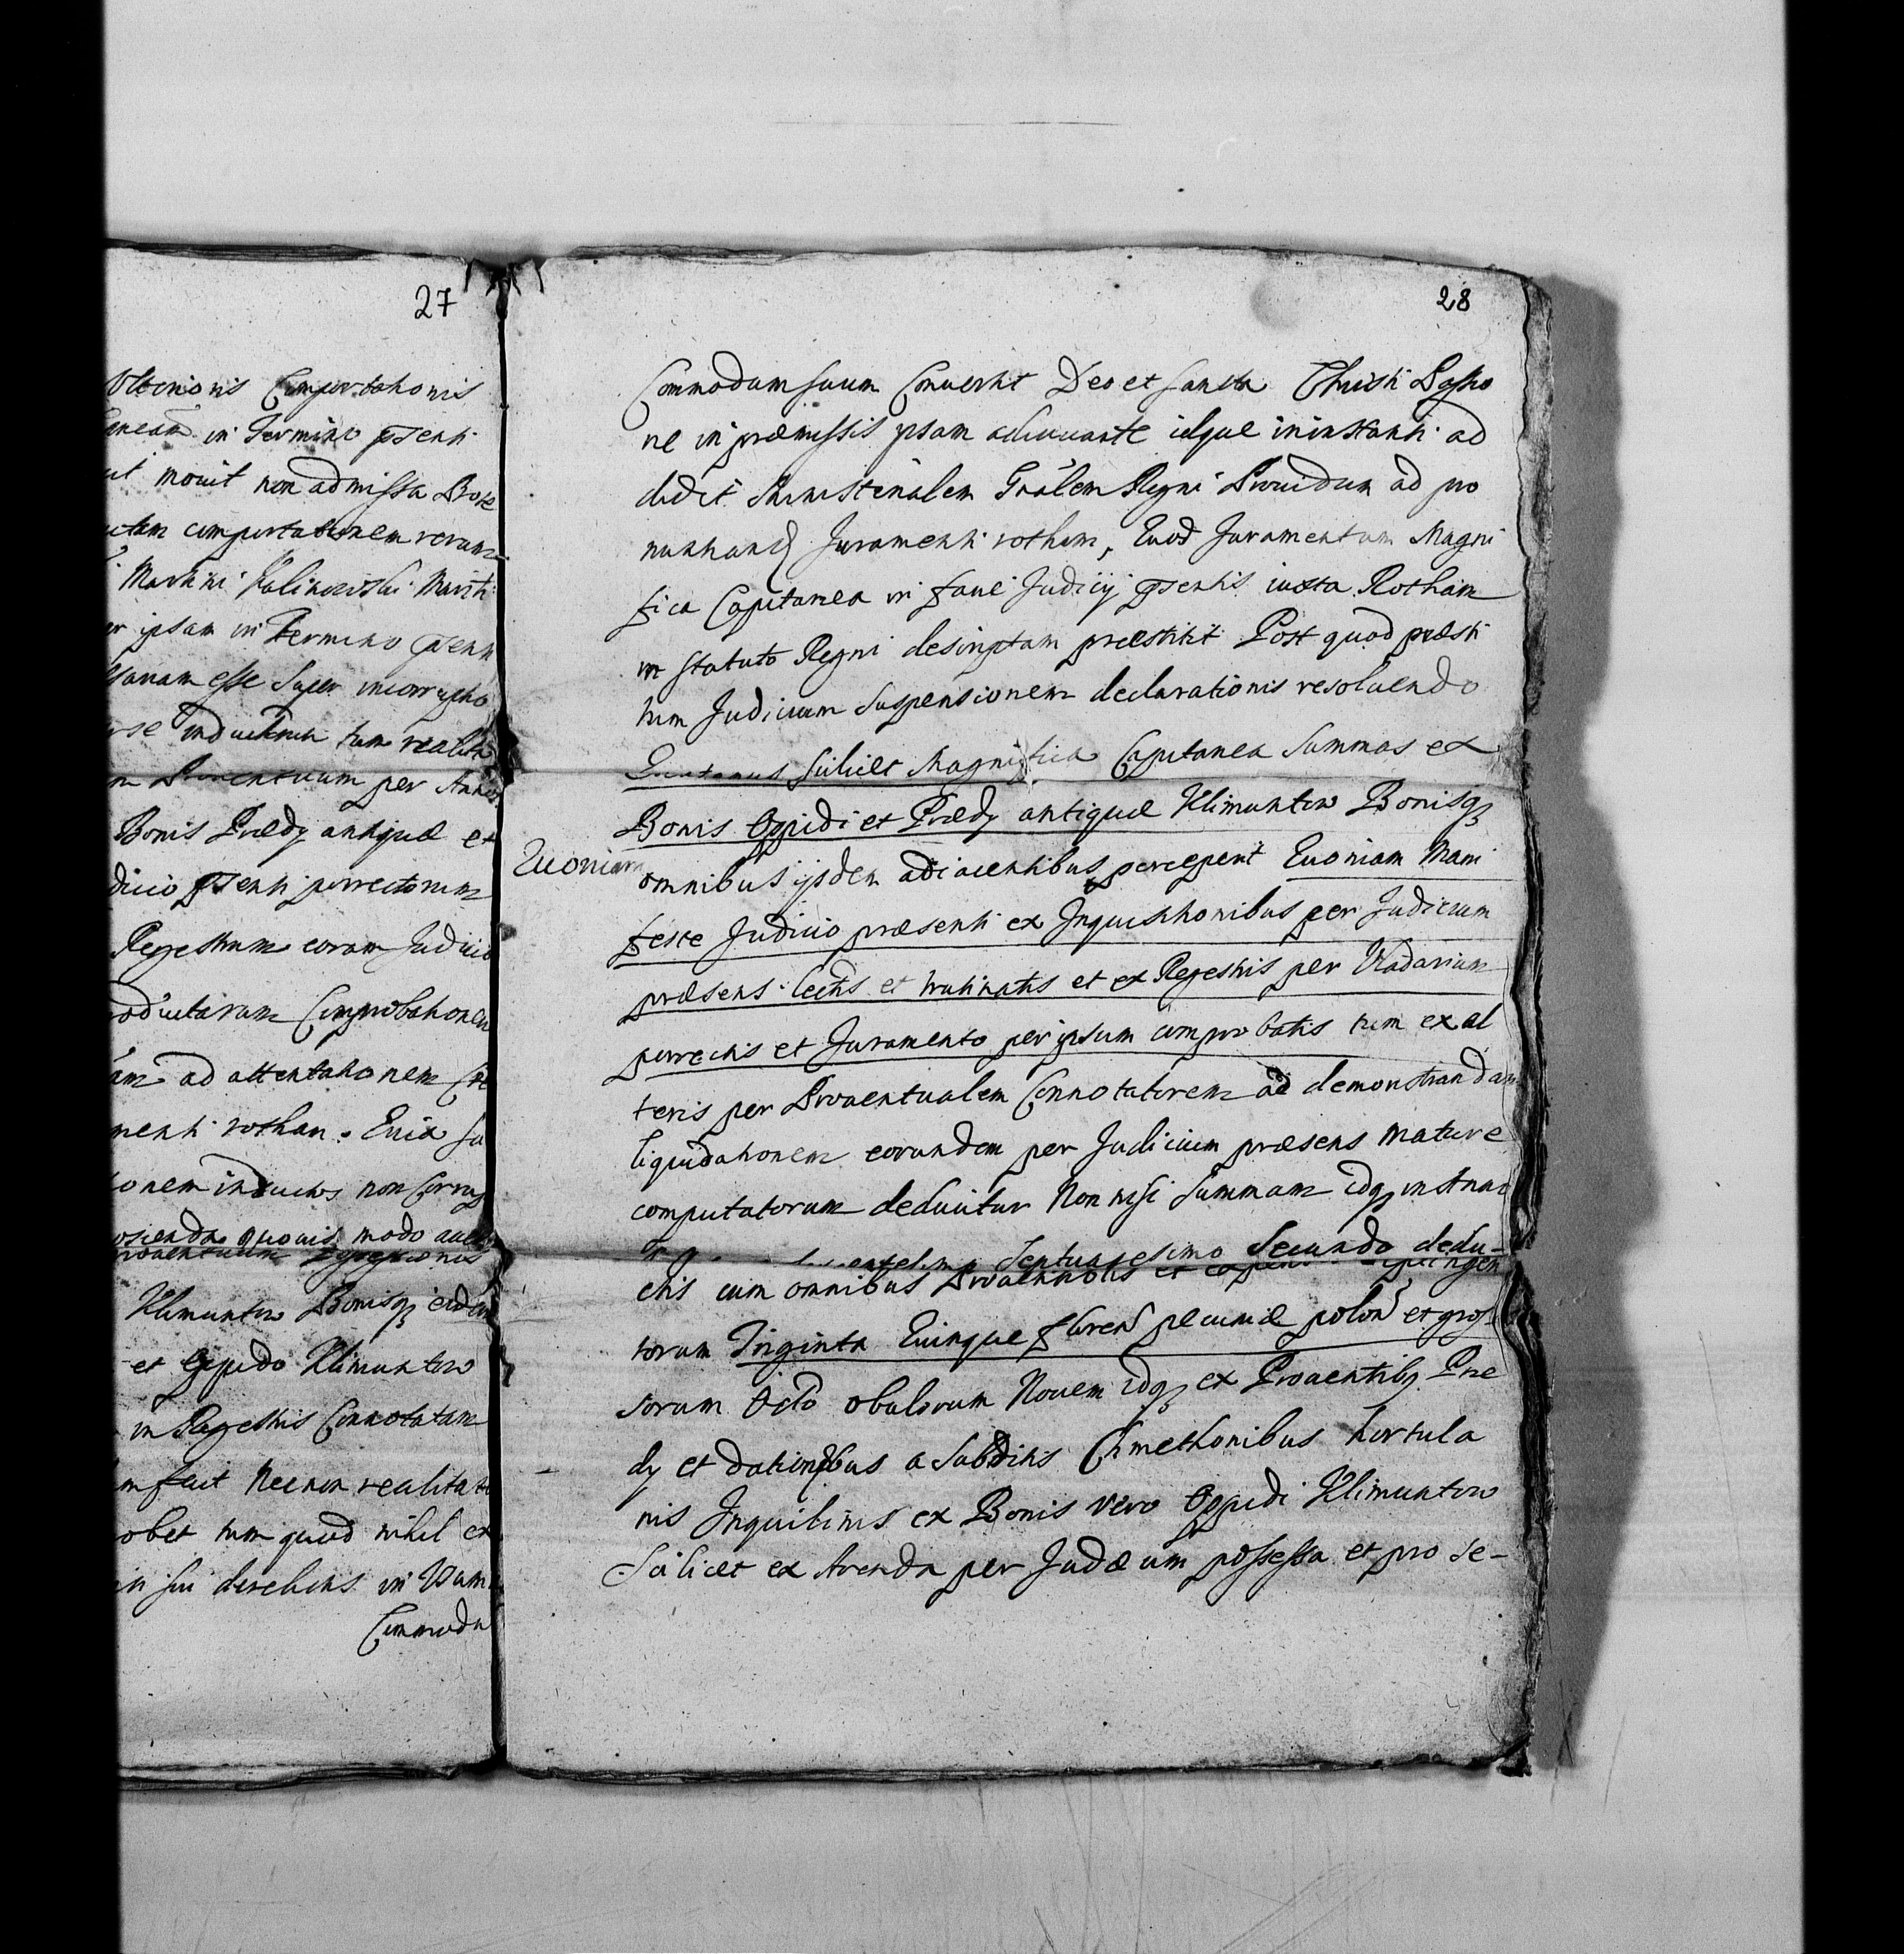 27
Ulterionis Comportationis
in Termino pñsenti
movit non admissa
comportationem rerum
Martini Kalinowski Mariti
ipsam in Termino pñsenti
esse super incorrupto
inductarum tum realita
Proventuum per Annos
Bonis Prædy antiquæ et
pñsenti porrectorum
Regestrum coram Judicio
Comprobationem
ad attentationem
rotham. Quia
inductos non
quovis modo
Proventuum
Klimuntow Bonisq3
et Oppido Klimuntow
in Regestris Connotatam
fecit Necnon realitat
tum quod nihil ex
sui derelictis in Usum
Commodu
28
Commodum suum Convertit Deo et sancta Christi Passio
ne in præmissis ipsam adiuuante idque in instanti ad
didit Ministerialem Gnâlem Regni Prouidum ad pro
nuntiand Juramenti rotham, Quod Juramentum Magni
fica Capitanea in facie Judicij pñsentis iuxta Rotham
in statuto Regni descriptam præstitit Post quod præsti
tum Judicium Suspensionem declarationis resoluendo
Quatenus scilicet Magnifica Capitanea Summas ex
Bonis Oppidi et Prædy antiquæ Klimuntow Bonisq3
Quoniam
omnibus ijsdem adiacentibus perceperit Quoniam Mani
feste Judicio præsenti ex Inquisitionibus per Judicium
præsens lectis et trutinatis et ex Regestris per Vladarium
porrectis et Juramento per ipsum comprobatis tum ex al
teris per Proventualem Connotatorem ad demonstrandam
liquidationem eorundem per Judicium præsens mature
computatorum deducitur Non nisi Summam idq3 in Anno
Septuagesimo Secundo dedu-
ctis cum omnibus Proventibus et
torum Triginta Quinque floren pecuniæ polon et gros
sorum Octo obulorum Novem idq3 ex Proventib3 Præ
dy et dationibus a Subditis Cmethonibus hortula
nis Inquilinis ex Bonis vero Oppidi Klimuntow
Scilicet ex Arenda per Judæum possessa et pro se-